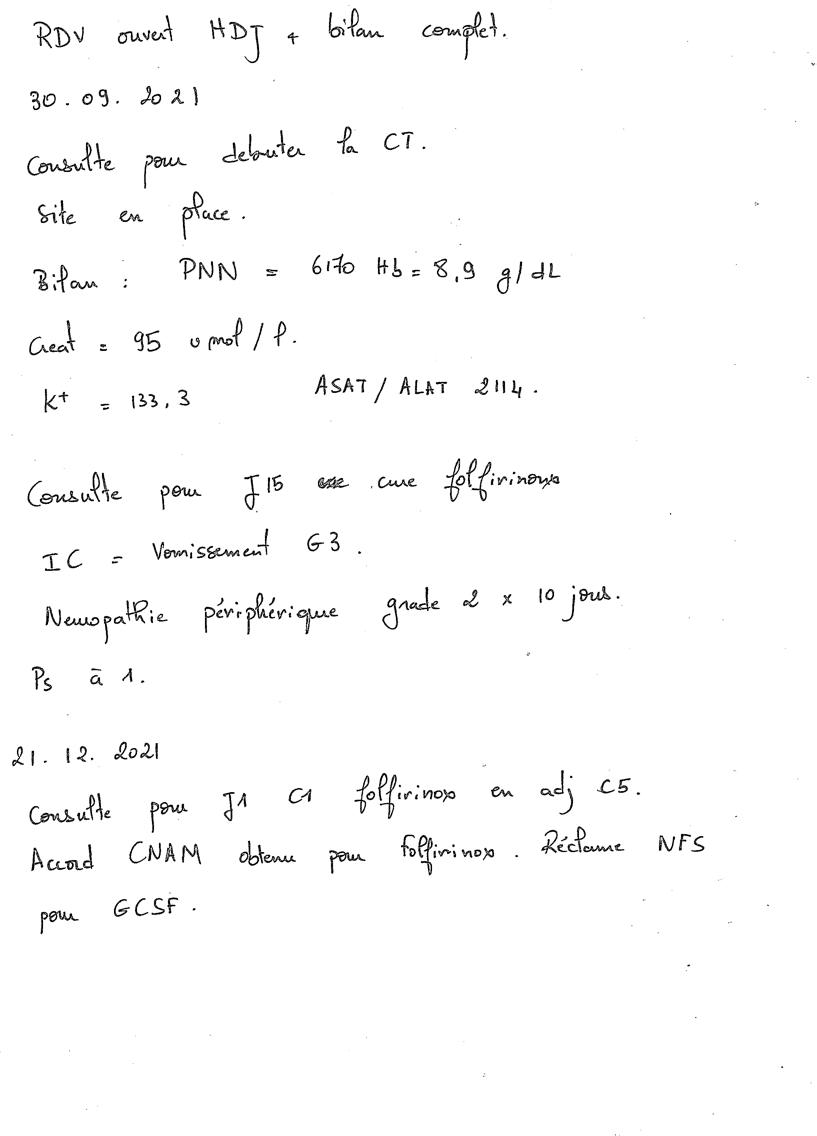 RDV ouvert HDJ + bilan complet.
30.09.2021
Consulte pour debuter la CT.
Site en place.
Bilan : PNN = 6170 Hb = 8,9 g/dL
Creat = 95 umol/l.
K+ = 133,3 ASAT/ALAT 2114.
Consulte pour J15 cure folfirinoxe
IC = Vomissement G3.
Neuropathie périphérique grade 2 x 10 jours.
Ps à 1.
21.12.2021
Consulte pour J1 C1 folfirinox en adj C5.
Accord CNAM obtenu pour folfirinox. Réclame NFS
pour GCSF.